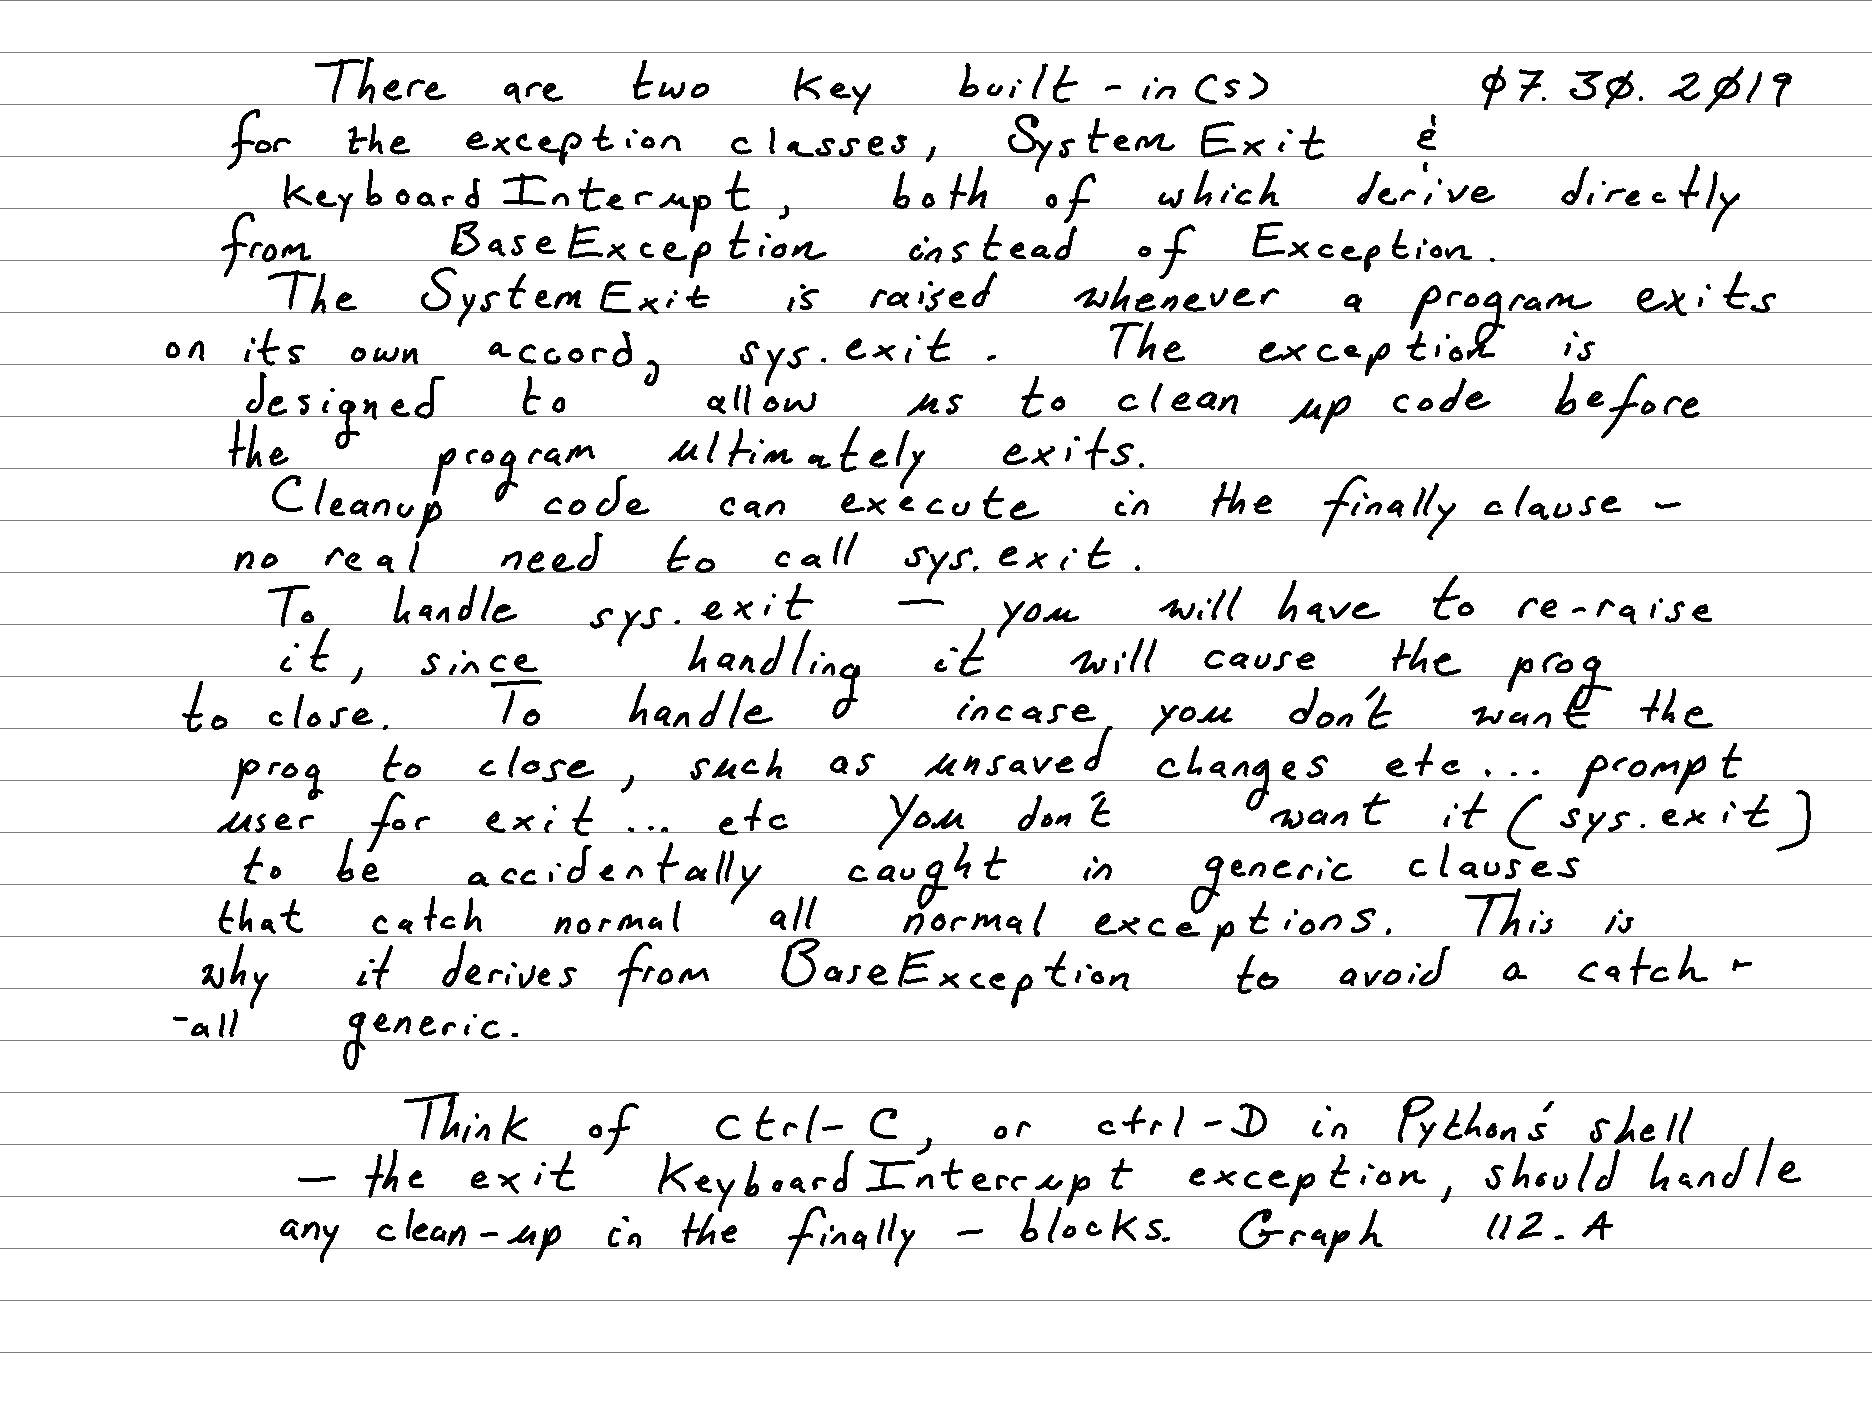 There are two key built-in(s) 07.30.2019
for the exception classes, SystemExit &
KeyboardInterupt, both of which derive directly
from BaseException instead of Exception.
The SystemExit is raised whenever a program exits
on its own accord, sys.exit. The exception is
designed to allow us to clean up code before
the program ultimately exits.
Cleanup code can execute in the finally clause -
no real need to call sys.exit.
To handle sys.exit — you will have to re-raise
it, since handling it will cause the prog
to close. To handle incase you don't want the
prog to close, such as unsaved changes etc... prompt
user for exit... etc You don't want it (sys.exit)
to be accidentally caught in generic clauses
that catch normal all normal exceptions. This is
why it derives from BaseException to avoid a catch-
-all generic.
Think of ctrl-C, or ctrl-D in Python's shell
— the exit KeyboardInterrupt exception, should handle
any clean-up in the finally - blocks. Graph 112.A